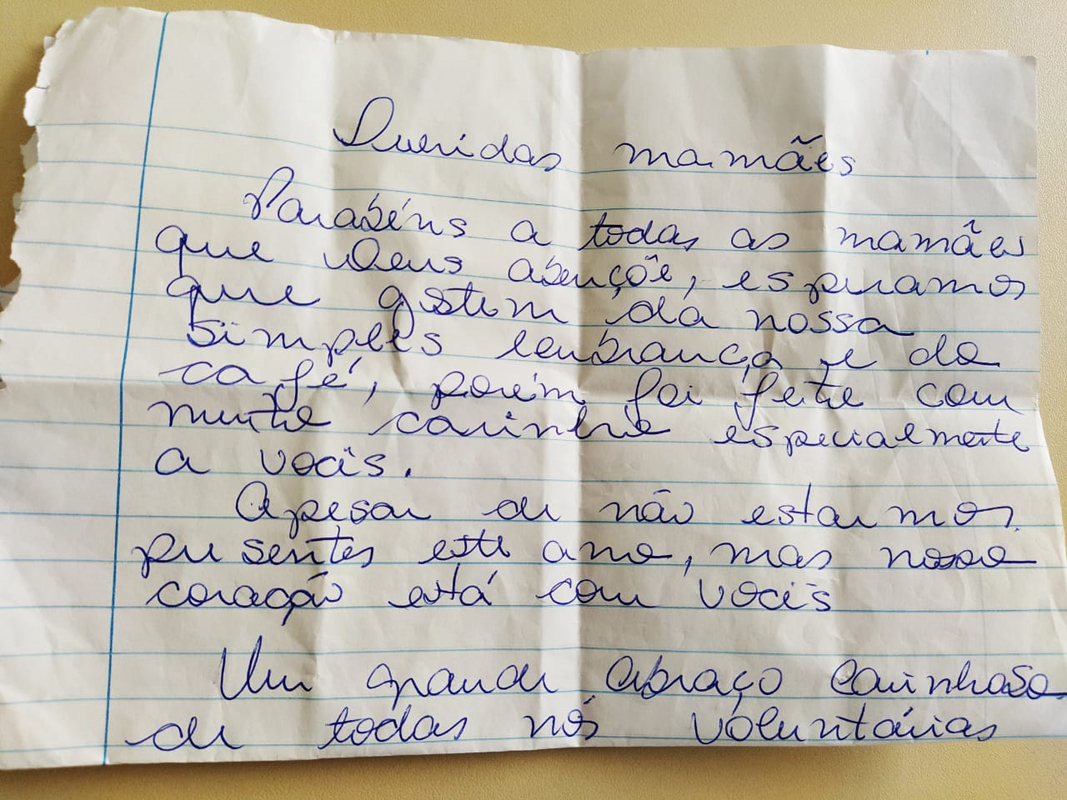 Queridas mamães
Parabéns a todas as mamães
que Deus abençõe, esperamos
que gostem da nossa
simples lembrança e do
café, porém foi feito com
muito carinho especialmente
a vocês.
Apesar de não estarmos
presentes este ano, mas nosso
coração está com vocês
Um grande abraço carinhoso
de todas nós voluntárias